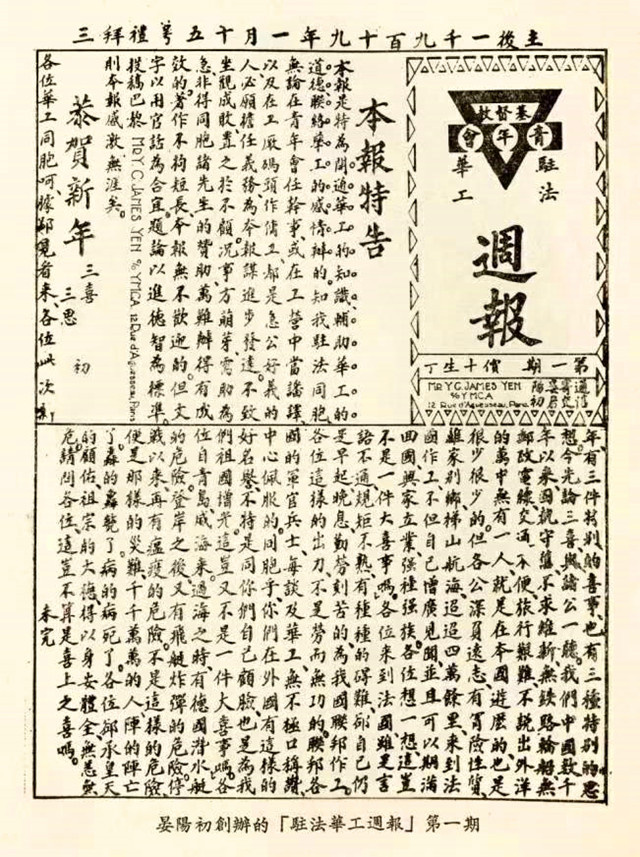 主後一千九百十九年一月十五号禮拜三
基督教
青年會
駐法
華工
週報
第一期 價十生丁
通信寄交晏君陽初
MR Y.C. JAMES YEN
% Y.M.C.A.
12 Rue d'Aguesseau, Paris
本報特告
本報是特為開通華工的知識輔助華工的
道德聯絡華工的感情辦的。知我駐法同胞
無論在青年會任幹事或在工營中當譯
以及在工廠碼頭作傭工都是急公好義的
人必願擔任義務為本報謀進步發達。不致
坐觀成敗置之於不顧。況事方萌芽需助為
急非得同胞諸先生的贊助萬難辦得有成
效的。著作不拘短長本報無不歡迎的但文
字以用官話為合宜題論以進德智為標準。
投稿巴黎 MR Y.C. JAMES YEN % YMCA 12 Rue d'Aguesseau, Paris
則本報感激無涯矣。
恭賀新年 三喜 三思 初
各位華工同胞呵據鄙見看來各位此次新
年有三件特別的喜事也有三種特別的思
想今先論三喜與諸公一聽。我們中國數千
年以來國守舊不求維新無鐵路輪船無
郵政電線交通不便旅行艱難不說出外洋
的萬中無有一人就是在本國遊歷的也是
很少很少的但各公深負遠志有冒險性質
離家別鄉梯山航海迢迢四萬餘里來到法
國作工不但自己增廣見聞並且可以期滿
回國興家立業強種強族各位想一想這豈
不是一件大喜事嗎。各位來到法國雖是言
語不通規矩不熟有種種的碍難自己仍
是早起晚息勤勞刻苦的為我國聯邦作工
各位這樣的出力不是勞而無功的聯邦各
國的軍官兵士每談及華工無不極口稱讚
中心佩服的同胞乎你們在外國有這樣的
好名譽不特是同你們自己顧臉也是為我
們祖國增光這豈又不是一件大喜事嗎。各
位自青島威海來過海之時有德國潛水艇
的危險登岸之後又有飛艇炸彈的危險停
戰以來再有瘟疫的危險不是這樣的危險
便是那樣的災難千千萬萬的人陣的陣亡
了病的病死了各位卻承皇天
的顧佑祖宗的大德得以身安體全無恙無
危請問各位這豈不算是喜上之喜嗎。
未完
晏陽初創辦的「駐法華工週報」第一期